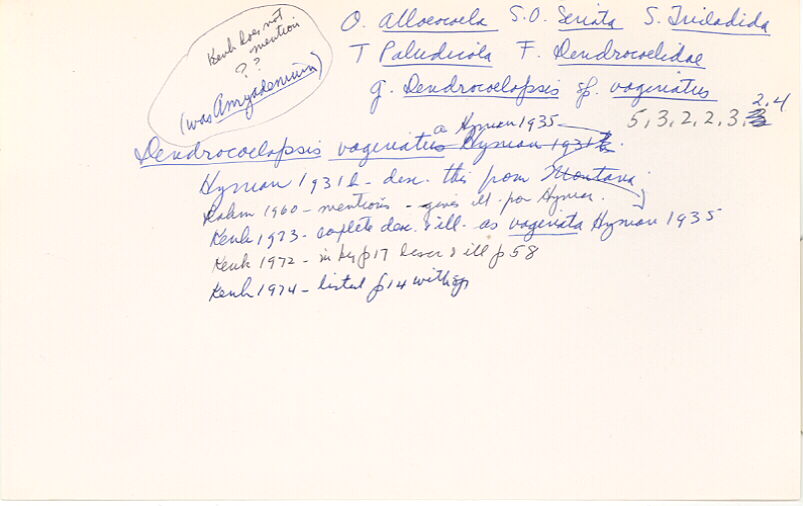 O. Alloeocoela S.O. Seriata S. Tricladida
T Paludicola F. Dendrocoelidae
g. Dendrocoelopsis sp. vaginatus
2.4
5, 3, 2, 2, 3,
Kenk does not
mention
? ?
(was Amyadenium)
a Hyman 1935
Dendrocoelopsis vaginatus Hyman 1931b.
Hyman 1931b - desc. this from Montana.
1960 - mentions - gives ill. for Hyman.
Kenk 1973 - complete desc. & ill. as vaginata Hyman 1935
Kenk 1972 - in key p17 descr & ill p58
Kenk 1974 - listed p14 with